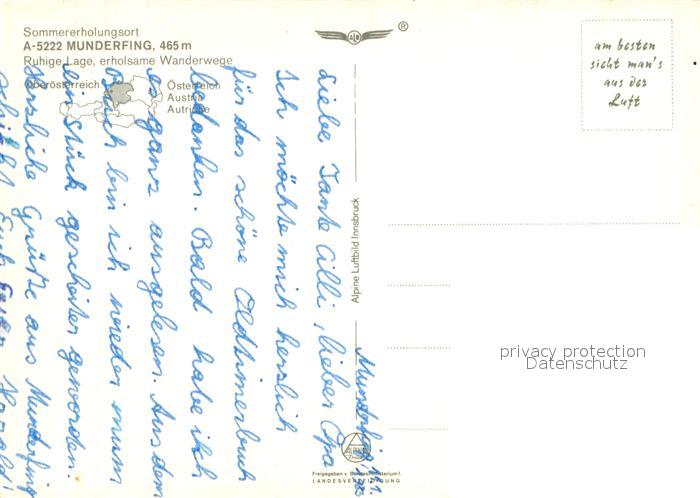 Sommererholungsort
A-5222 MUNDERFING, 465 m
Ruhige Lage, erholsame Wanderwege
Oberösterreich
Österreich
Austria
Autriche
®
am besten
sieht man's
aus der
Luft
Alpine Luftbild Innsbruck
Munderfing
Liebe Tante Cilli, lieber Opa
Ich möchte mich herzlich
für das schöne Oldtimerbuch
bedanken. Bald habe ich
es ganz ausgelesen. Aus dem
Buch bin ich wieder um
ein Stück gescheiter geworden.
Herzliche Grüße aus Munderfing
schickt Euch Euer Harald!
privacy protection
Datenschutz
Freigegeben v. Bundesministerium f.
LANDESVERTEIDIGUNG